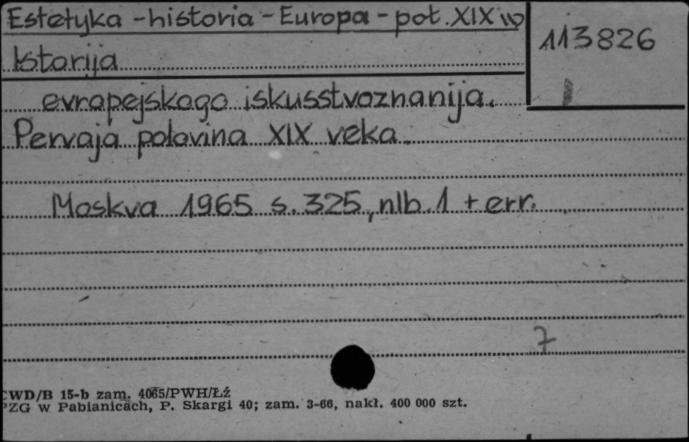 Estetyka - historia - Europa - poł. XIX w
113826
Istorija
evropejskogo iskusstvoznanija.
Pervaja polovina XIX veka.
Moskva 1965 s. 325, nlb. 1 + err.
7
CWD/B 15-b zam. 4065/PWH/Łź
PZG w Pabianicach, P. Skargi 40; zam. 3-66, nakł. 400 000 szt.